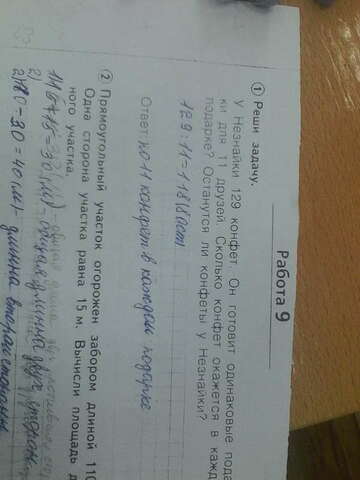 Работа 9
1 Реши задачу.
У Незнайки 129 конфет. Он готовит одинаковые пода
ки для 11 друзей. Сколько конфет окажется в кажд
подарке? Останутся ли конфеты у Незнайки?
129:11=11(8 ост)
Ответ: по 11 конфет в каждом подарке
2 Прямоугольный участок огорожен забором длиной 110
Одна сторона участка равна 15 м. Вычисли площадь д
ного участка.
1) 15+15=30(м)- общая длинна двух сторон
2)
2) 80-30=40(м)- длинна второй стороны